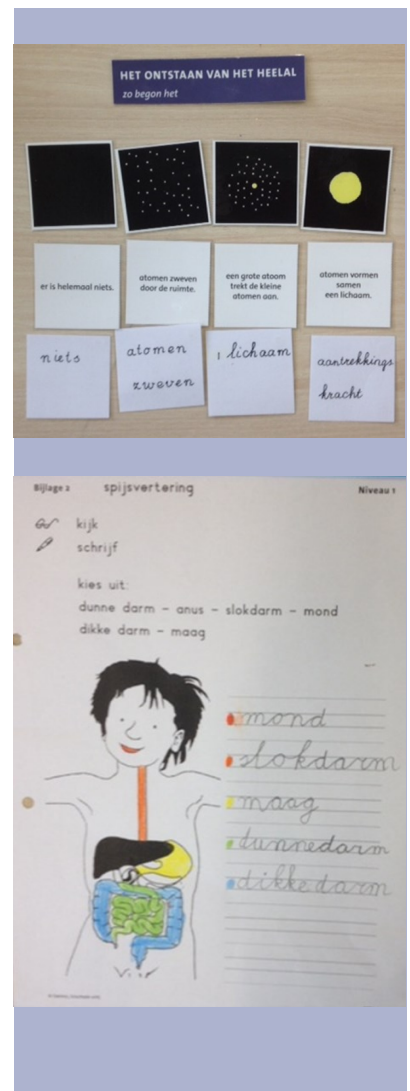 HET ONTSTAAN VAN HET HEELAL
zo begon het
er is helemaal niets.
atomen zweven
door de ruimte.
een grote atoom
trekt de kleine
atomen aan.
atomen vormen
samen
een lichaam.
niets
atomen
zweven
1 lichaam
aantrekkings
kracht
Bijlage 2 spijsvertering Niveau 1
kijk
schrijf
kies uit:
dunne darm – anus – slokdarm – mond
dikke darm – maag
mond
slokdarm
maag
dunnedarm
dikkedarm